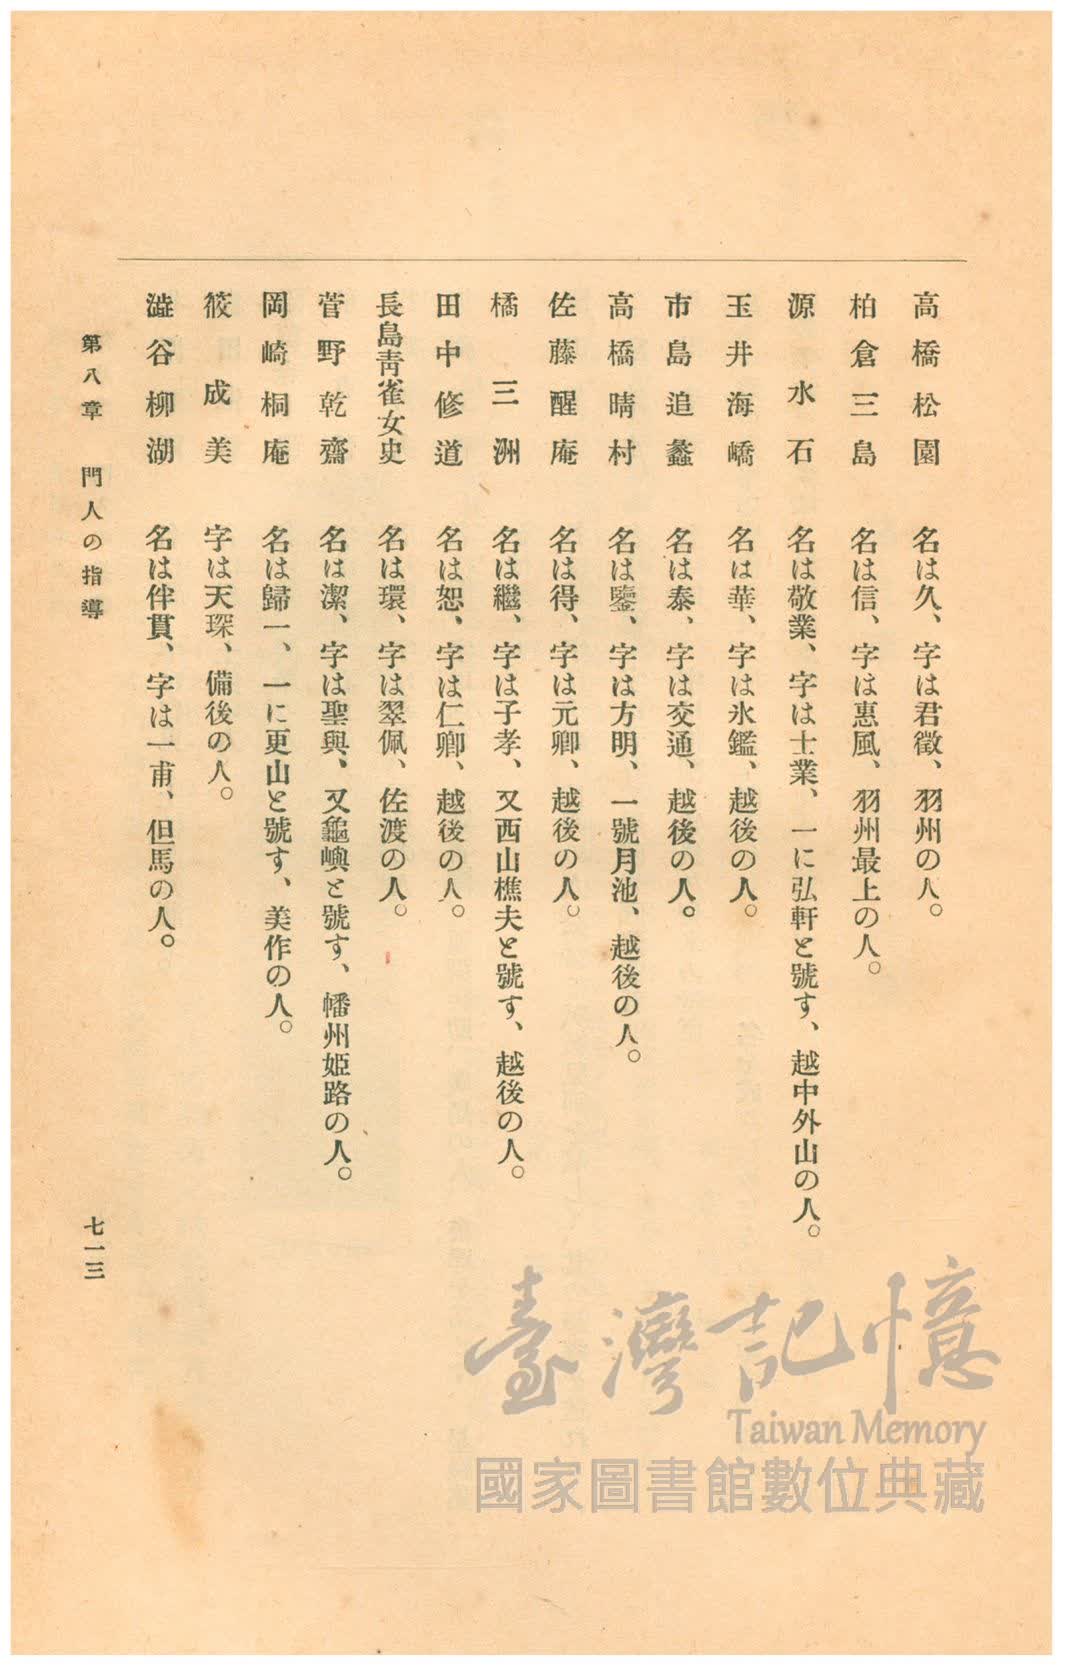 高橋松園　名は久、字は君徵、羽州の人。
柏倉三島　名は信、字は惠風、羽州最上の人。
源水石　名は敬業、字は士業、一に弘軒と號す、越中外山の人。
玉井海嶠　名は華、字は氷鑑、越後の人。
市島追蠡　名は泰、字は交通、越後の人。
高橋晴村　名は鑒、字は方明、一號月池、越後の人。
佐藤醒庵　名は得、字は元卿、越後の人。
橘三洲　名は繼、字は子孝、又西山樵夫と號す、越後の人。
田中修道　名は恕、字は仁卿、越後の人。
長島靑雀女史　名は環、字は翠佩、佐渡の人。
菅野乾齋　名は潔、字は聖與、又龜嶼と號す、幡州姬路の人。
岡崎桐庵　名は歸一、一に更山と號す、美作の人。
筱成美　字は天琛、備後の人。
澁谷柳湖　名は伴貫、字は一甫、但馬の人。
第八章　門人の指導
七一三
臺灣記憶
Taiwan Memory
國家圖書館數位典藏